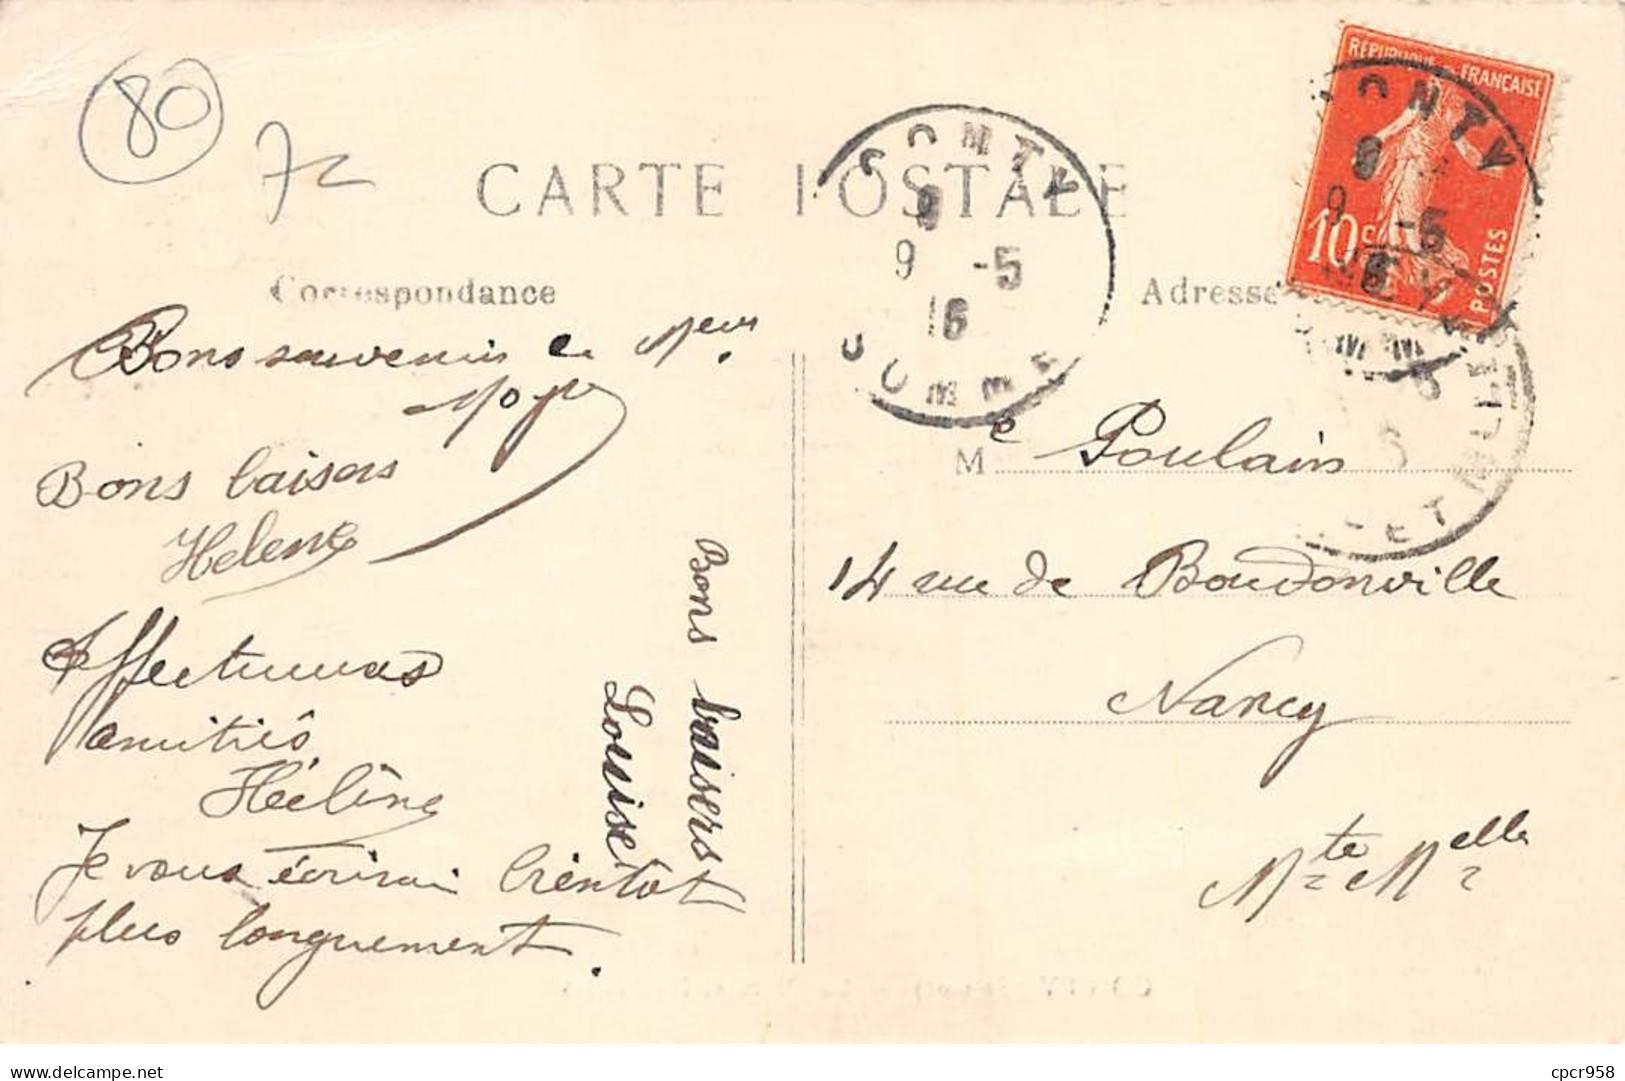 80
72
CARTE POSTALE
Correspondance
Adresse
RÉPUBLIQUE FRANÇAISE
10c
POSTES
CONTY
9 -5
16
SOMME
CONTY
9 -5
Bons souvenirs
Bons baisers
Helene
Affectueuses
amitiés
Hélène
Je vous écrirai bientot
plus longuement.
Bons baisers
Louise
Me Poulain
14 rue de Boudonville
Nancy
Mte Melle
www.delcampe.net
cpcr958